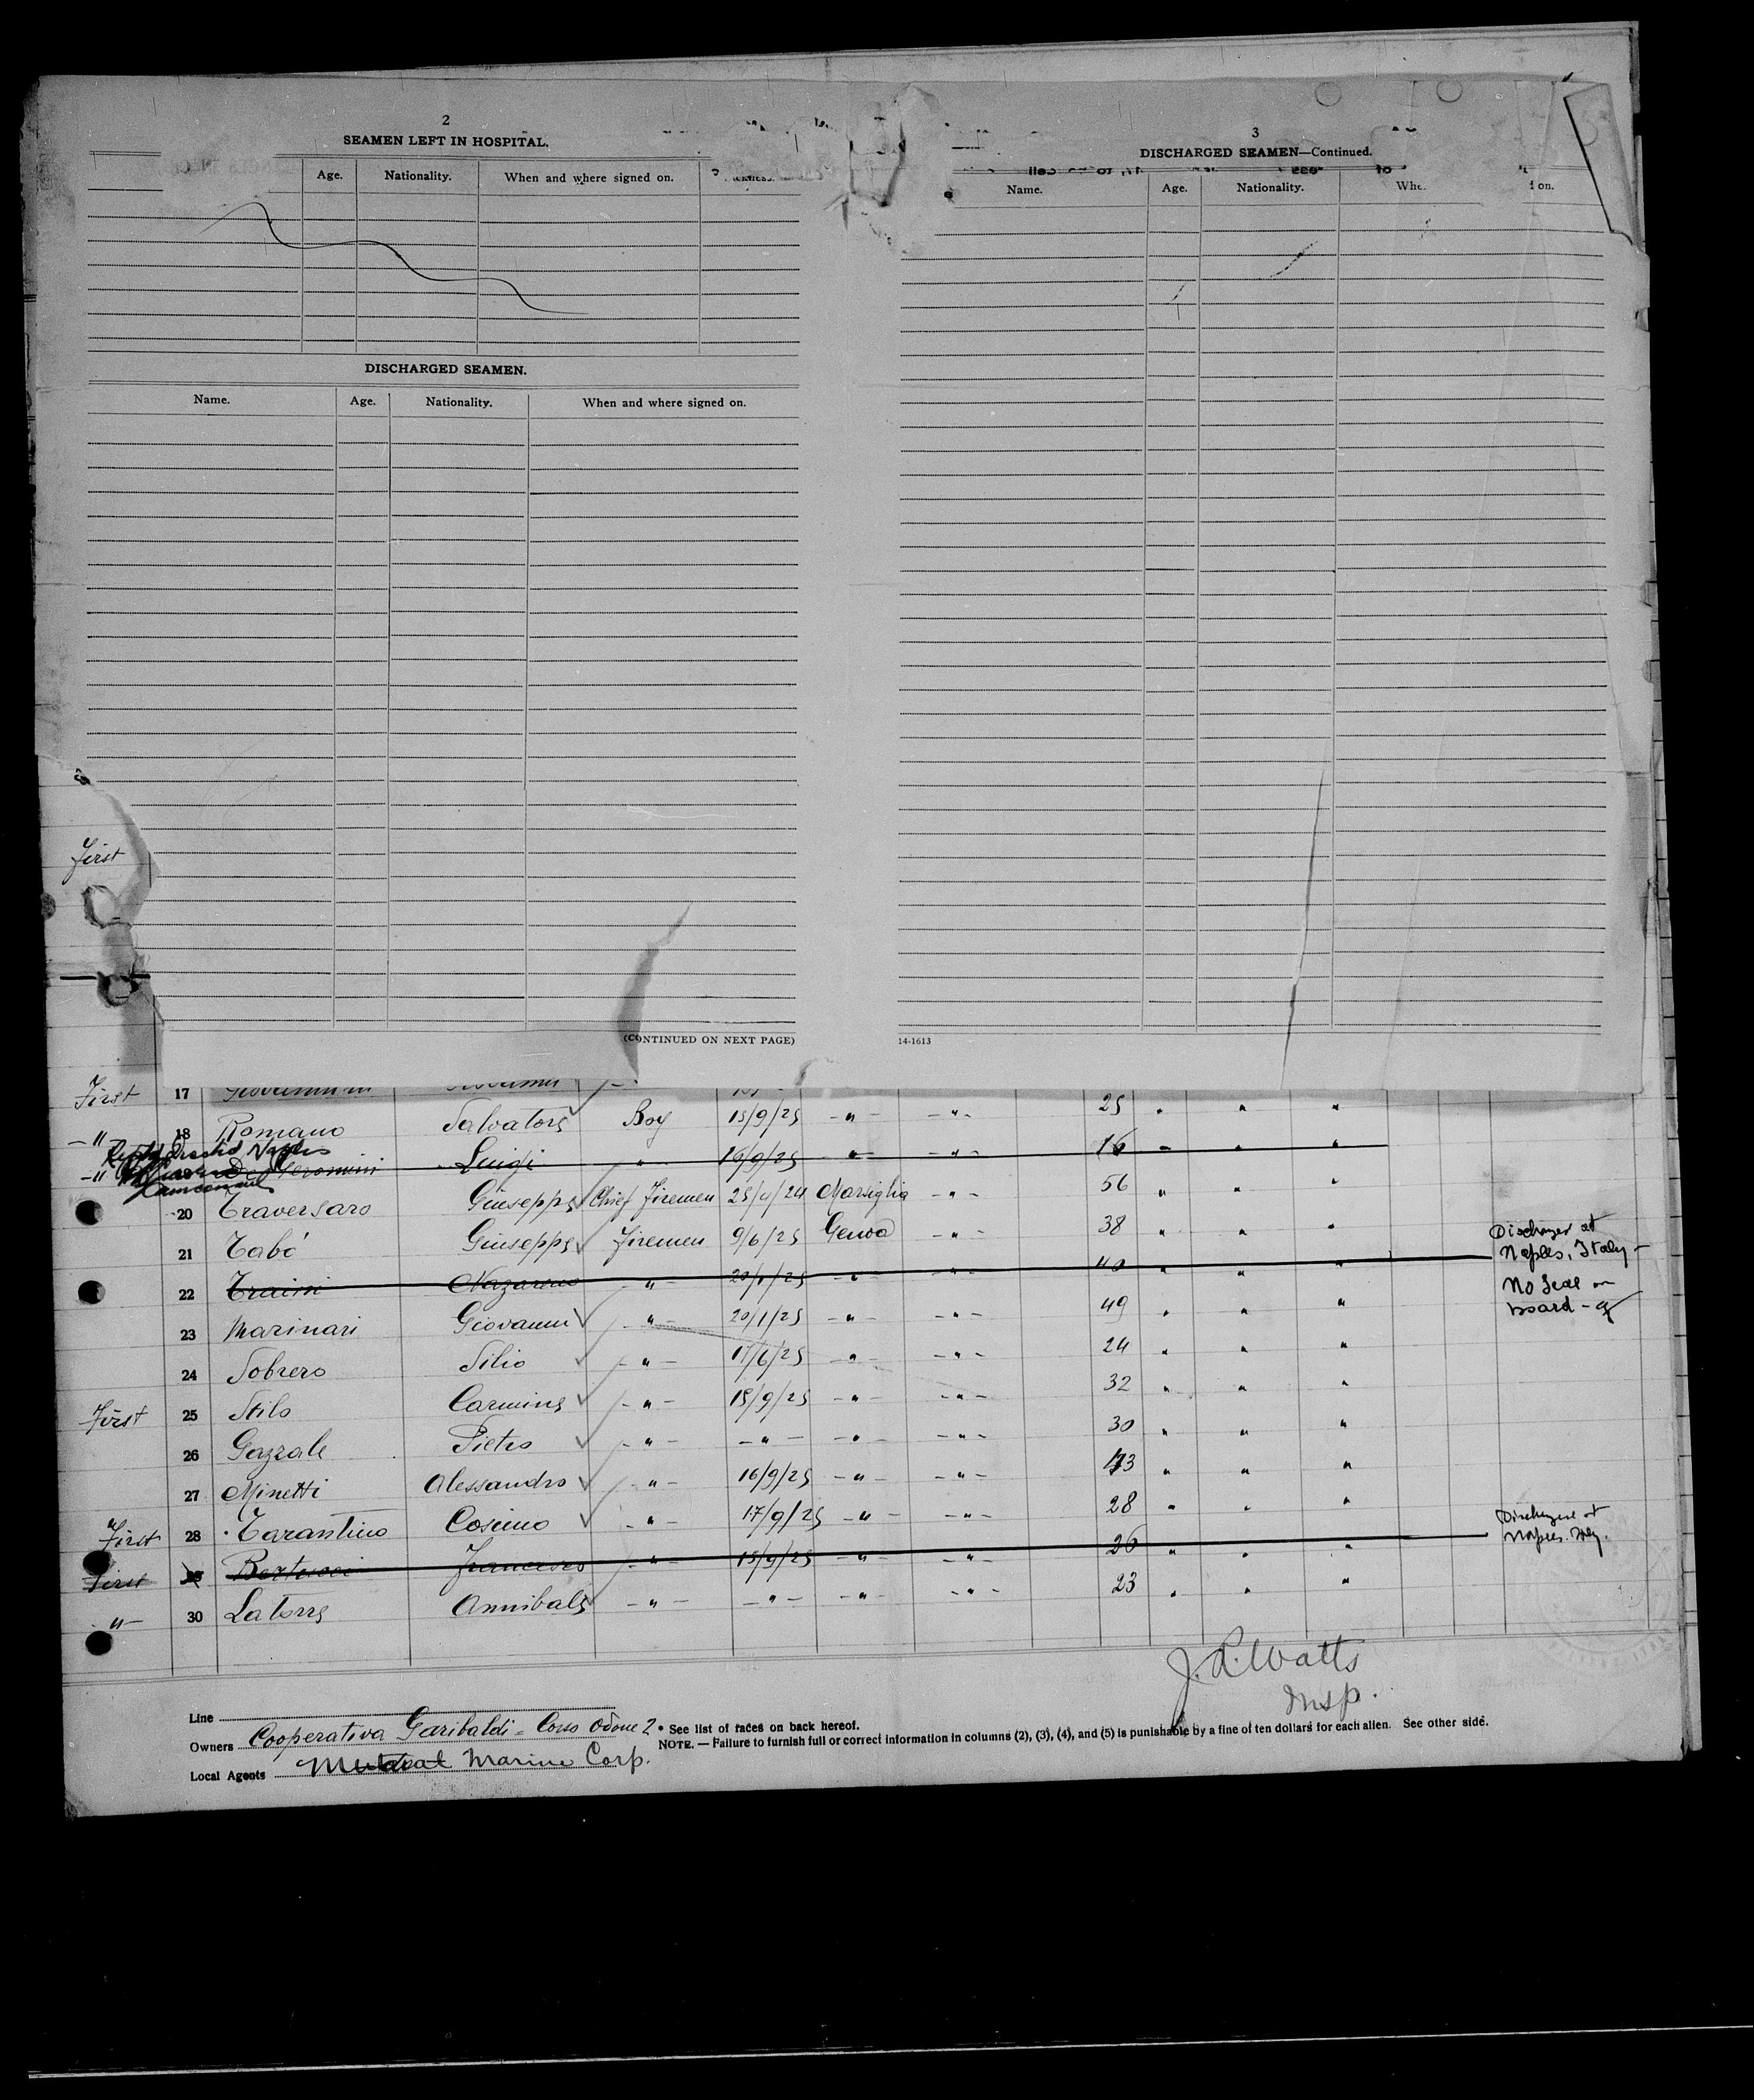 2
SEAMEN LEFT IN HOSPITAL.
Age. Nationality. When and where signed on.
DISCHARGED SEAMEN.
Name. Age. Nationality. When and where signed on.
(CONTINUED ON NEXT PAGE)
3
DISCHARGED SEAMEN—Continued.
Name. Age. Nationality. Whe on.
14-1613
First
First 17
-"- 18 Romano Salvatore Boy 15/9/25 -"- -"- 25 " " "
-"- Geromini Luigi " 16/9/25 -"- -"- 16 " " "
20 Traversaro Giuseppe Chief Firemen 25/4/24 Marsiglia -"- 56 " " "
21 Tabó Giuseppe Firemen 9/6/25 Genoa -"- 38 " " "
Discharged at
Naples, Italy -
22 Traini Nazareno -"- 20/1/25 -"- -"- 40 " " "
No Seal on
board -
23 Marinari Giovanni -"- 20/1/25 -"- -"- 49 " " "
24 Sobrero Silio -"- 17/6/25 -"- -"- 24 " " "
First 25 Stilo Carmine -"- 15/9/25 -"- -"- 32 " " "
26 Gazzale Pietro -"- -"- -"- -"- 30 " " "
27 Minetti Alessandro -"- 16/9/25 -"- -"- 43 " " "
First 28 Tarantino Cosimo -"- 17/9/25 -"- -"- 28 " " "
Discharged at
Naples. Italy.
First 29 Bertucci Francesco -"- 15/9/25 -"- -"- 26 " " "
-"- 30 Latorre Annibale -"- -"- -"- -"- 23 " " "
J. R. Watts
Insp.
Line
Owners Cooperativa Garibaldi - Corso Odone 2
Local Agents Mutual Marine Corp.
* See list of races on back hereof.
NOTE. — Failure to furnish full or correct information in columns (2), (3), (4), and (5) is punishable by a fine of ten dollars for each alien. See other side.